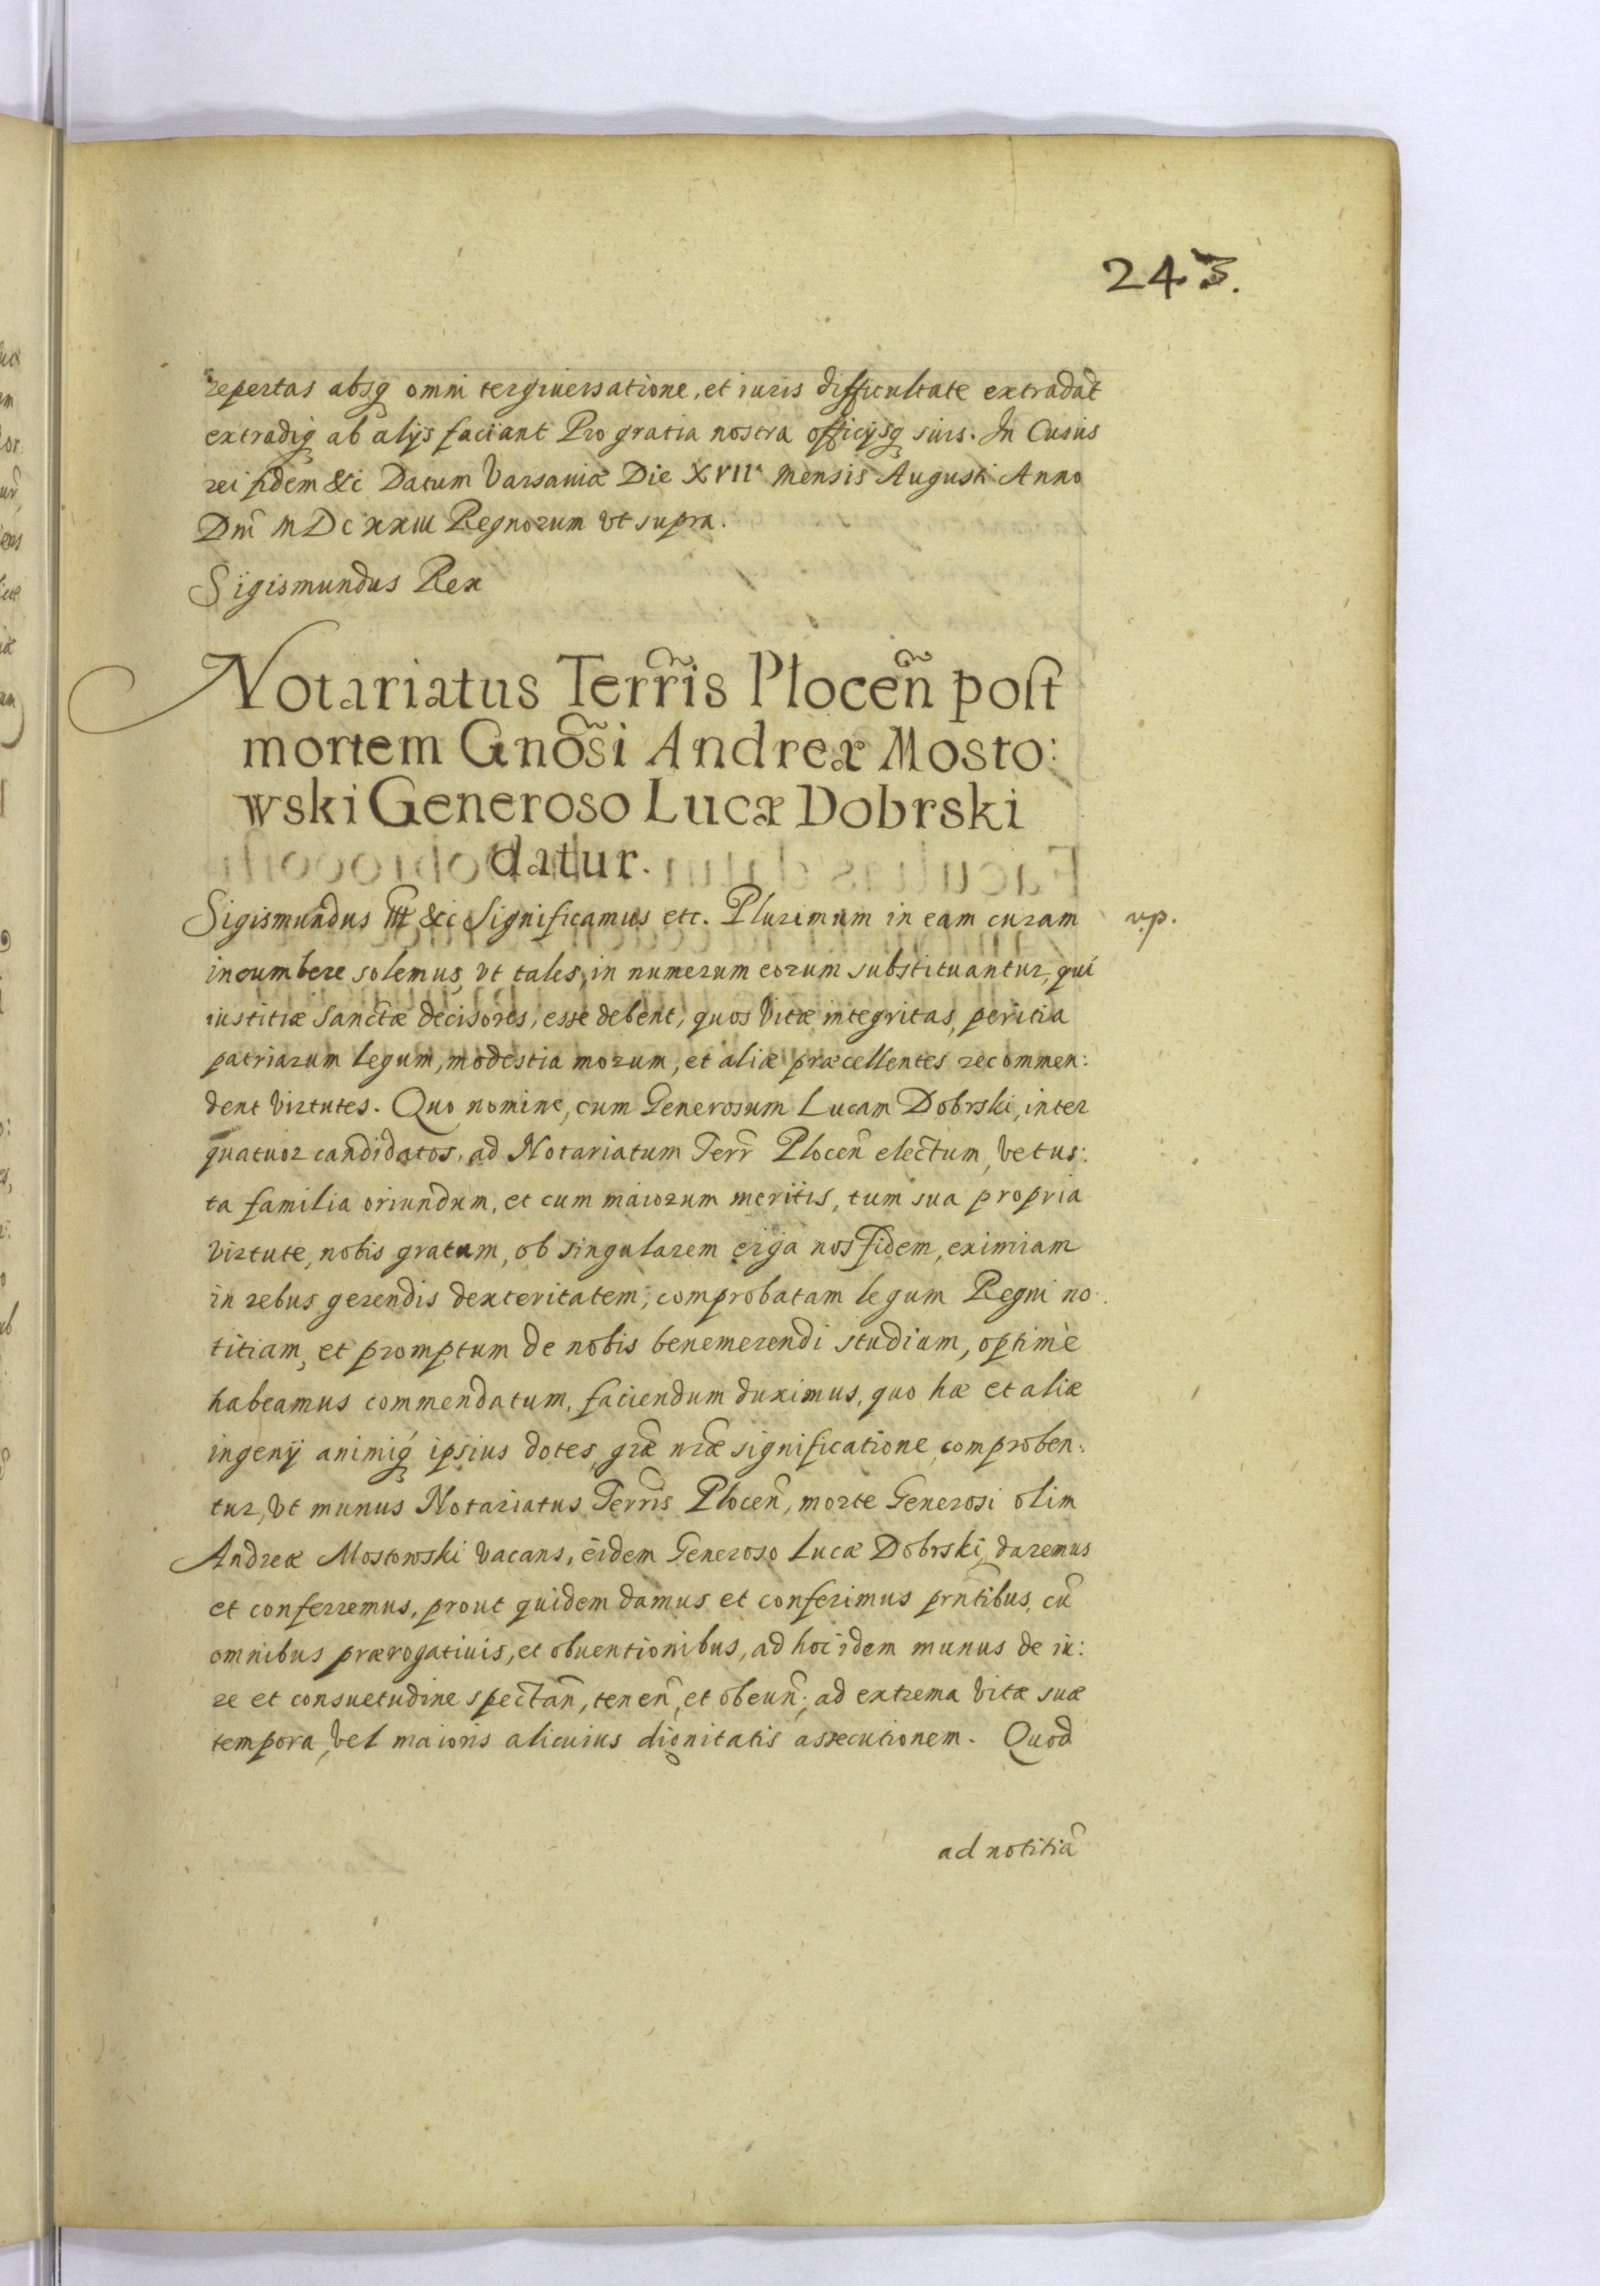 243.
repertas absq omni tergiuersatione, et iuris difficultate extradat
extradiq ab alijs faciant Pro gratia nostra officijsq suis. In Cuius
rei fidem &c Datum Varsauiæ Die XVIIª Mensis Augusti Anno
Dnĩ MDCXXIII Regnorum vt supra.
Sigismundus Rex
Notariatus Terr̃is Plocen̄ post
mortem Gnõsi Andreæ Mosto:
wski Generoso Lucæ Dobrski
datur.
Sigismundus III &c Significamus etc. Plurimum in eam curam
v.p.
incumbere solemus, vt tales, in numerum eorum substituantur, qui
iustitiæ Sanctæ decisores, esse debent, quos vitæ integritas, peritia
patriarum legum, modestia morum, et aliæ præcellentes recommen:
dent virtutes. Quo nomine, cum Generosum Lucam Dobrski, inter
quatuor candidatos, ad Notariatum Terr̃ Plocen̄ electum, vetus:
ta familia oriundum, et cum maiorum meritis, tum sua propria
virtute, nobis gratum, ob singularem erga nos fidem, eximiam
in rebus gerendis dexteritatem, comprobatam legum Regni no:
titiam, et promptum de nobis benemerendi studium, optimè
habeamus commendatum, faciendum duximus, quo hæ et aliæ
ingenij animiq́ ipsius dotes, gr̃æ nr̃æ significatione comproben:
tur, vt munus Notariatus Terr̃is Plocen̄, morte Generosi olim
Andreæ Mostowski vacans, eidem Generoso Lucæ Dobrski, daremus
et conferremus, prout quidem damus et conferimus prñtibus, cũ
omnibus prærogatiuis, et obuentionibus, ad hoc idem munus de iu:
re et consuetudine spectan̄, tenen̄, et obeun̄, ad extrema vitæ suæ
tempora, vel maioris alicuius dignitatis assecutionem. Quod
ad notitiã